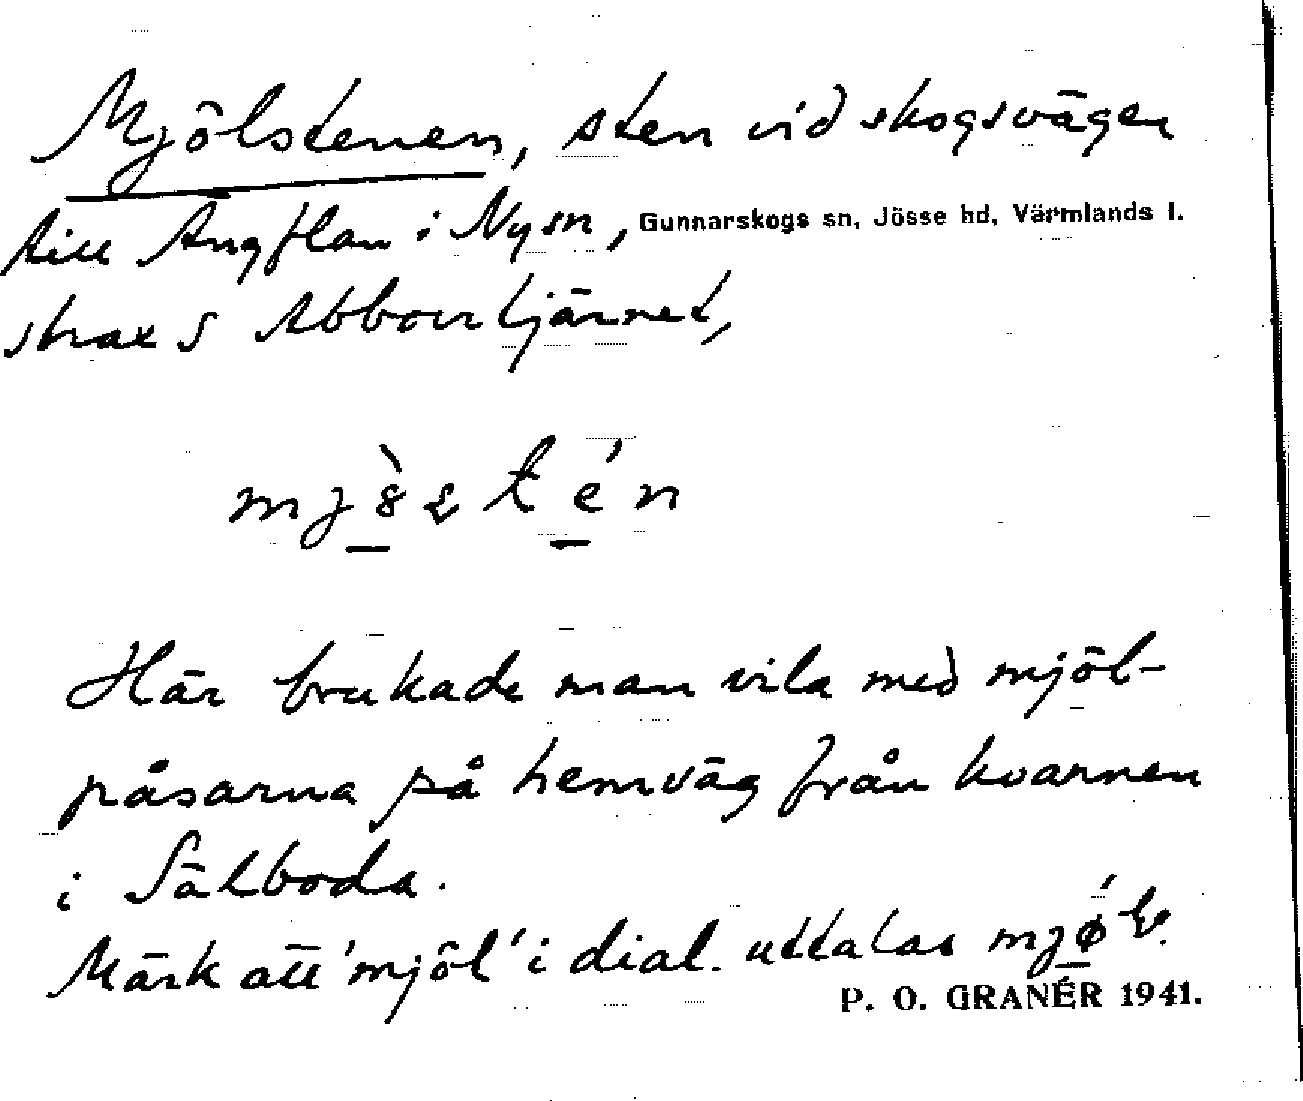 Mjölstenen, sten vid skogsvägen
till Ängflan i Nysn, Gunnarskogs sn, Jösse hd, Värmlands l.
strax S Abborrtjärnet,
Här brukade man vila med mjöl-
påsarna på hemväg från kvarnen
i Sälboda.
Märk att 'mjöl' i dial. uttalas
P. O. GRANÉR 1941.